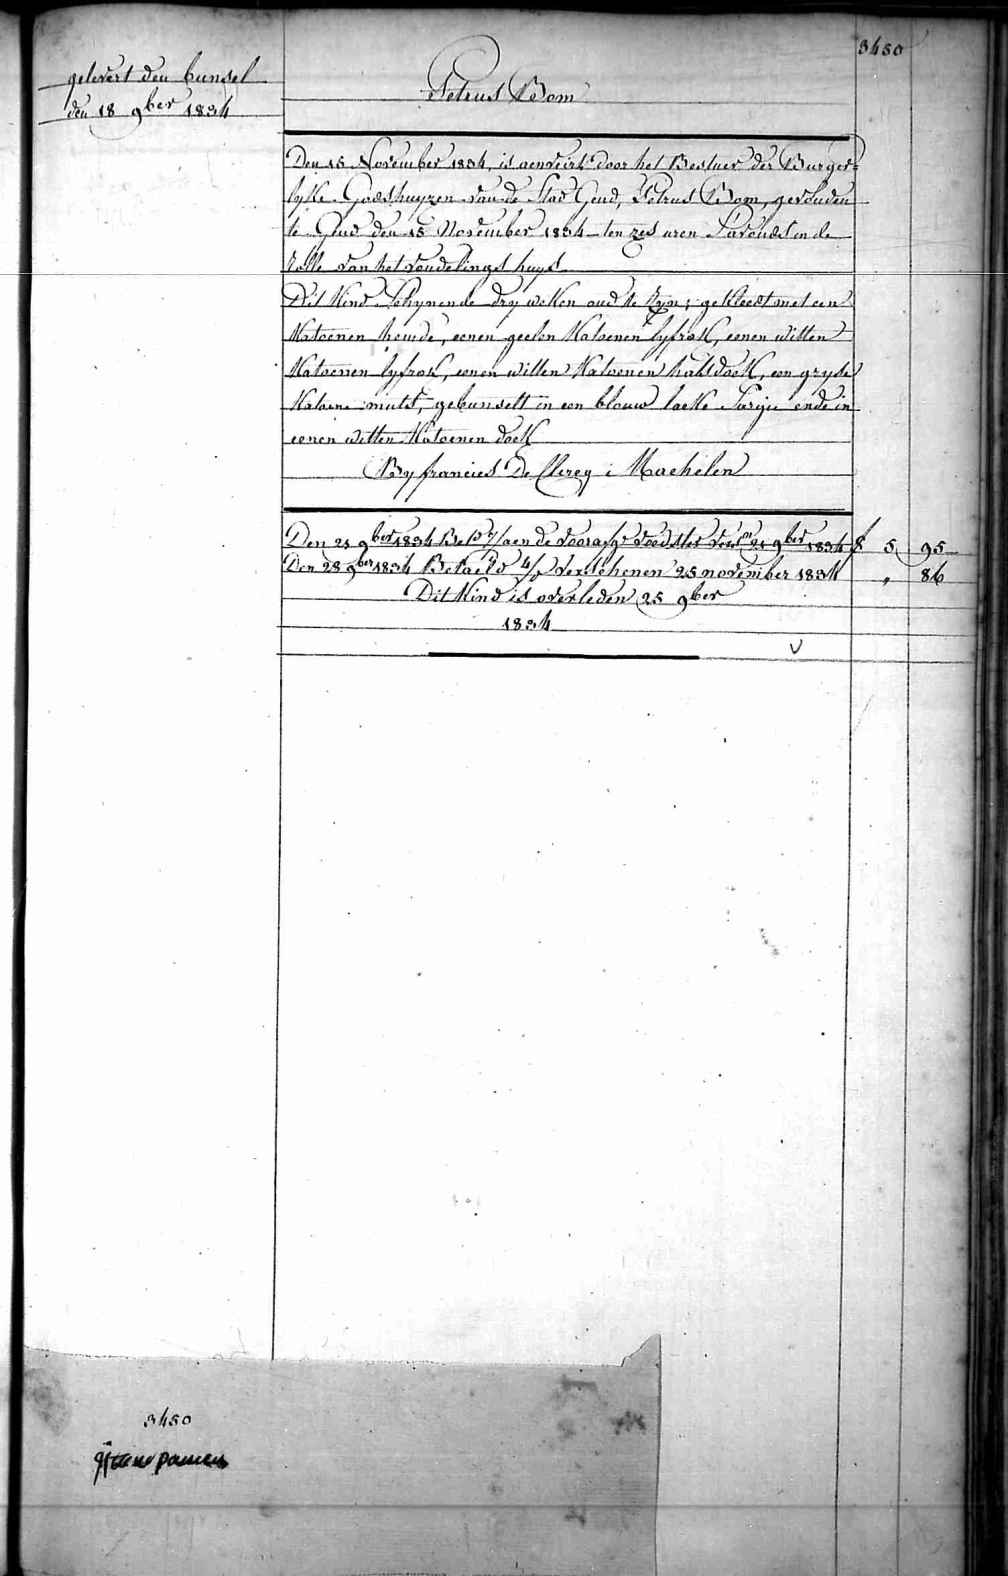 3480
gelevert den bunsel
den 18 9ber 1834
Petrus Bom
Den 15 November 1834, is aenveirt door het Bestuer der Burger-
lyke Godshuyzen van de Stad Gend, Petrus Bom, gevonden
te Gend den 15 November 1834 ten zes uren S'avonds in de
rolle van het vondelings huys
Dit Kind Schynende dry weken oud te zyn; gekleedt met een
Katoenen hemde, eenen geelen Katoenen lyfrok, eenen witten
Katoenen lyfrok, eenen witten Katoenen halsdoek, een gryse
Katoene muts, gebunselt in een blouw laeke Sargie ende in
eenen witten Katoenen doek
By francies De Clercq i Machelen
Den 21 9ber 1834 aen de voedster 21 9ber 1834 f 5 95
Den 28 9ber 1834 Betaeld verschenen 25 november 1834 " 86
Dit Kind is overleden 25 9ber
1834
3480